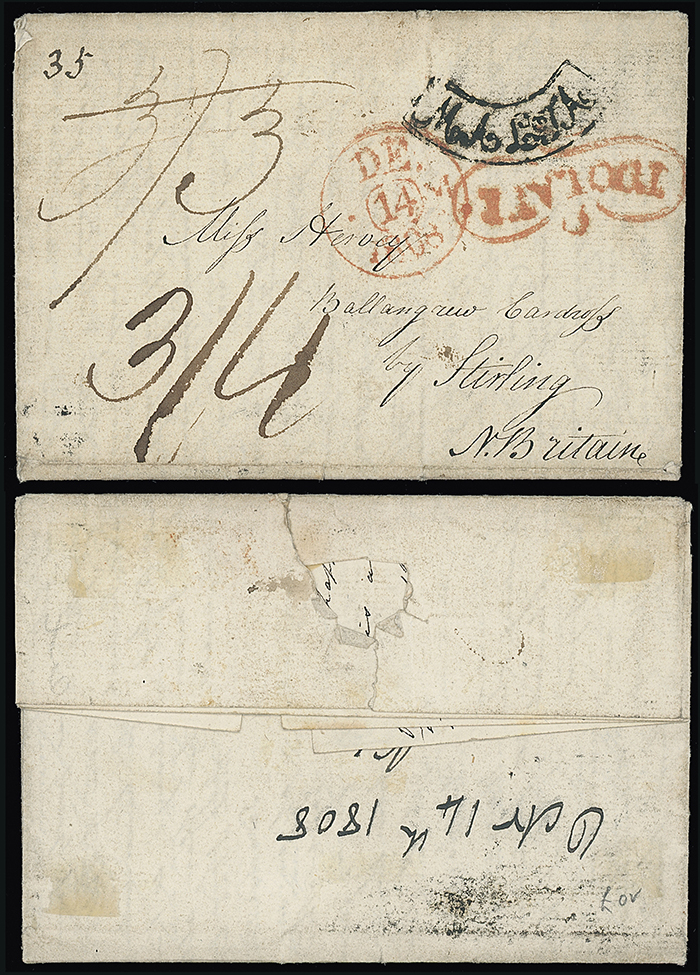 35
3/3
DE.
14
1808
TOO LATE
Miſs Hervey
Ballangrew Cardroſs
by Stirling
N. Britain
3/4
is a
Octr 14th 1808